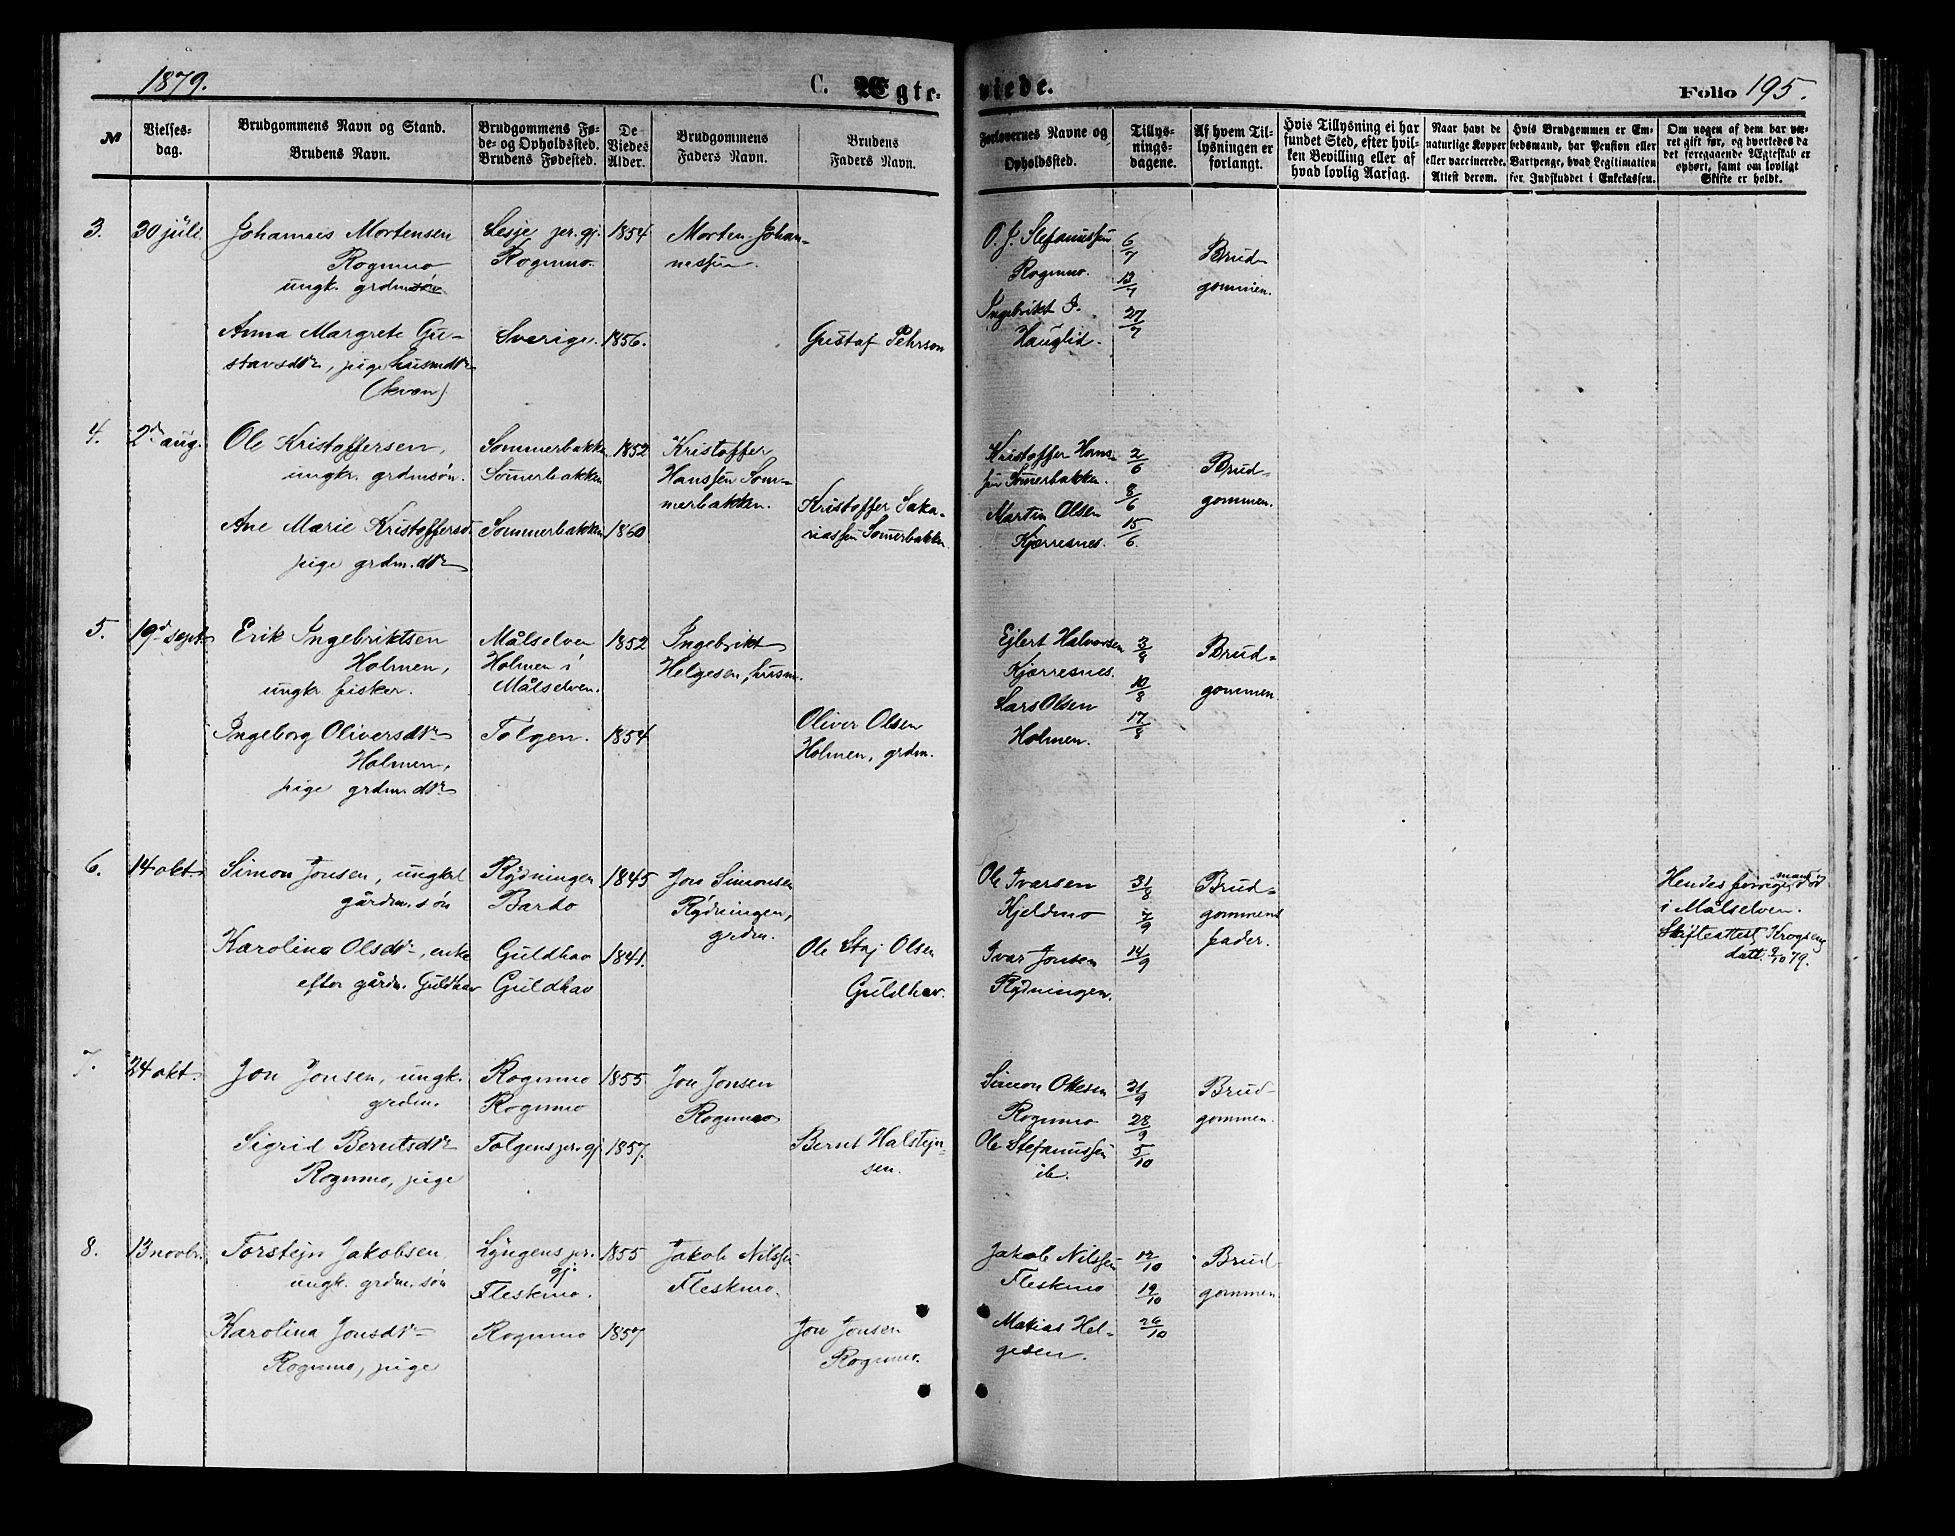 1879.
C. Ægte-
viede.
Folio 195.
№
Vielses-
dag.
Brudgommens Navn og Stand.
Brudens Navn.
Brudgommens Fø-
de- og Opholdssted.
Brudens Fødested.
De
Viedes
Alder.
Brudgommens
Faders Navn.
Brudens
Faders Navn.
Forlovernes Navne og
Opholdssted.
Tillys-
nings-
dagene.
Af hvem Til-
lysningen er
forlangt.
Hvis Tillysning ei har
fundet Sted, efter hvil-
ken Bevilling eller af
hvad lovlig Aarsag.
Naar havt de
naturlige Kopper
eller vaccinerede.
Attest derom.
Hvis Brudgommen er Em-
bedsmand, har Pension eller
Vartpenge, hvad Legitimation
for Indskuddet i Enkekassen.
Om nogen af dem har væ-
ret gift før, og hvorledes da
det foregaaende Ægteskab er
ophørt, samt om lovligt
Skifte er holdt.
3.
30 juli
Johannes Mortensen
Rognmo
ungk. grdmsön
Lesje pr. gj.
Rognmo.
1854
Morten Johan-
nessen
O. J. Stefanussen
Rognmo.
Ingebrikt J.
Hauglid.
6/7
13/7
27/7
Brud
gommen.
Anna Margrete Gu-
stavsdtr, pige husmdtr
(kvæn)
Sverige.
1856.
Gustaf Pehrson
4.
2d aug.
Ole Kristoffersen,
ungkr. grdmsön.
Sommerbakken
Somerbakken
1852
Kristoffer
Hanssen Som-
merbakken.
Kristoffer Hans-
sen Somerbakken.
Martin Olsen
Kjærresnes.
2/6
8/6
15/6.
Brud-
gommen.
Ane Marie Kristoffersd.
pige grdm. dtr
Sommerbakken
1860
Kristoffer Saka-
riassen Somerbakken
5.
19d sept
Erik Ingebriktsen
Holmen,
ungkr. fisker.
Målselven
Holmen i
Målselven.
1852
Ingebrikt
Helgesen, husm.
Ejlert Halvorsen
Kjærresnes.
Lars Olsen
Holmen.
3/8
10/8
17/8
Brud-
gommen
Ingeborg Oliversdtr
Holmen,
pige grdm. dtr
Tolgen.
1854
Oliver Olsen
Holmen, grdm.
6.
14 okt.
Simon Jonsen, ungkrl
gårdm. sön
Rydningen
Bardo
1845
Jon Simonsen
Rydningen,
grdm.
Ole Ivarsen
Kjeldmo
Ivar Jonsen
Rydningen.
31/8
7/9
14/9
Brud-
gommens
fader.
Hendes forrige mand död
i Målselven.
Skifteattest Krogseng
datt. 9/10 79.
Karolina Olsdtr, enke
efter gårdm. Guldhav
Guldhav
Guldhav
1841.
Ole Staj Olsen
Guldhav.
7.
24 okt.
Jon Jonsen, ungk.
grdm.
Rognmo
Rognmo
1855
Jon Jonsen
Rognmo
Simon Olsen
Rognmo
Ole Stefanussen
ib.
21/9
28/9
5/10
Brud-
gommen.
Sigrid Berntsdtr
Rognmo, pige
Tolgens pr. gj.
1857.
Bernt Halstejn-
sen.
8.
13 novbr.
Torstejn Jakobsen,
ungk. grdm. sön
Lyngens pr.
gj.
Fleskmo.
1855
Jakob Nilssen
Fleskmo.
Jakob Nilssen
Fleskmo
Matias Hel-
gesen.
12/10
19/10
26/10
Brud
gommen
Karolina Jonsdtr
Rognmo, pige
Rognmo
1857
Jon Jonsen
Rognmo.